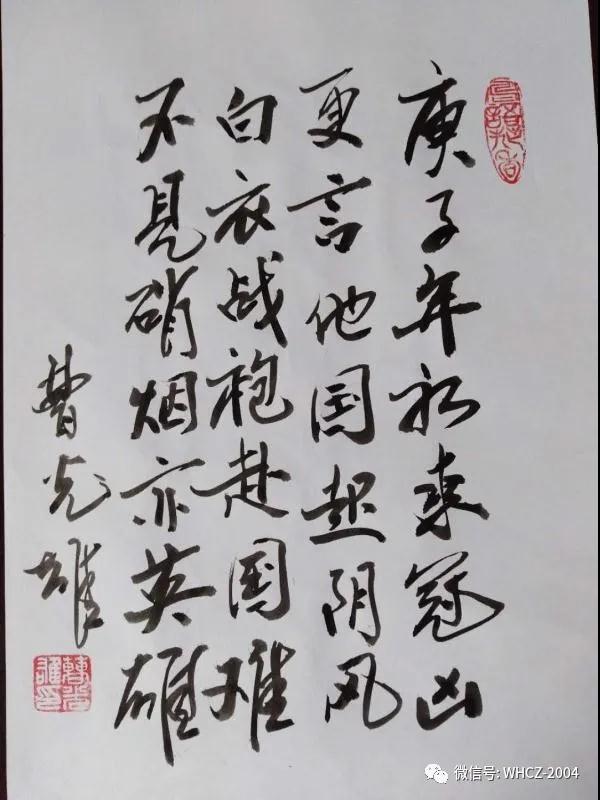 庚子年初来冠凶
更言他国起阴风
白衣战袍赴国难
不见硝烟亦英雄
曹光雄
微信号: WHCZ-2004